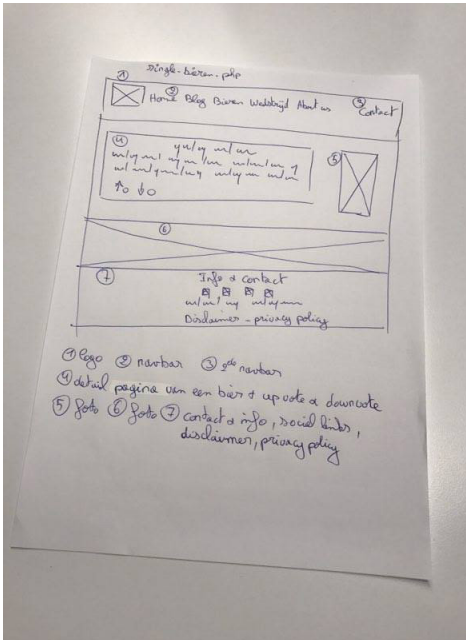 single-bieren.php
① ② ③
Home Blog Bieren Wedstrijd About us Contact
④
⑤
↑0 ↓0
⑥
⑦
Info & contact
Disclaimer - privacy policy
① logo ② navbar ③ 2de navbar
④ detail pagina van een bier + upvote & downvote
⑤ foto ⑥ foto ⑦ contact & info, social links,
disclaimer, privacy policy